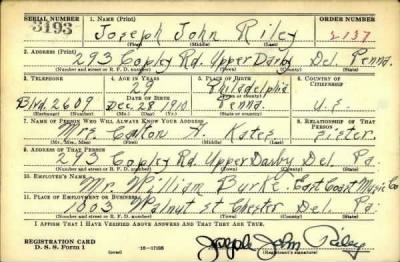 SERIAL NUMBER 1. NAME (Print) ORDER NUMBER
3193 Joseph John Riley 2137
(First) (Middle) (Last)
2. ADDRESS (Print)
293 Copley Rd. Upper Darby Del. Penna.
(Number and street or R. F. D. number) (Town) (County) (State)
3. TELEPHONE 4. AGE IN YEARS 5. PLACE OF BIRTH 6. COUNTRY OF CITIZENSHIP
29 Philadelphia
DATE OF BIRTH (Town or county)
Blvd. 2609 Dec. 28 1910 Penna. U.S.
(Exchange) (No.) (Mo.) (Day) (Yr.) (State or country)
7. NAME OF PERSON WHO WILL ALWAYS KNOW YOUR ADDRESS 8. RELATIONSHIP OF THAT PERSON
Mrs. A. Kates sister
(Mr., Mrs., Miss) (First) (Middle) (Last)
9. ADDRESS OF THAT PERSON
293 Copley Rd. Upper Darby Del. Pa.
(Number and street or R. F. D. number) (Town) (County) (State)
10. EMPLOYER'S NAME
Mr. William Burke. East Coast Music Co
11. PLACE OF EMPLOYMENT OR BUSINESS
1003 Walnut st. Chester Del. Pa.
(Number and street or R. F. D. number) (Town) (County) (State)
I AFFIRM THAT I HAVE VERIFIED ABOVE ANSWERS AND THAT THEY ARE TRUE.
REGISTRATION CARD
D. S. S. Form 1 Joseph John Riley
(Registrant's signature)